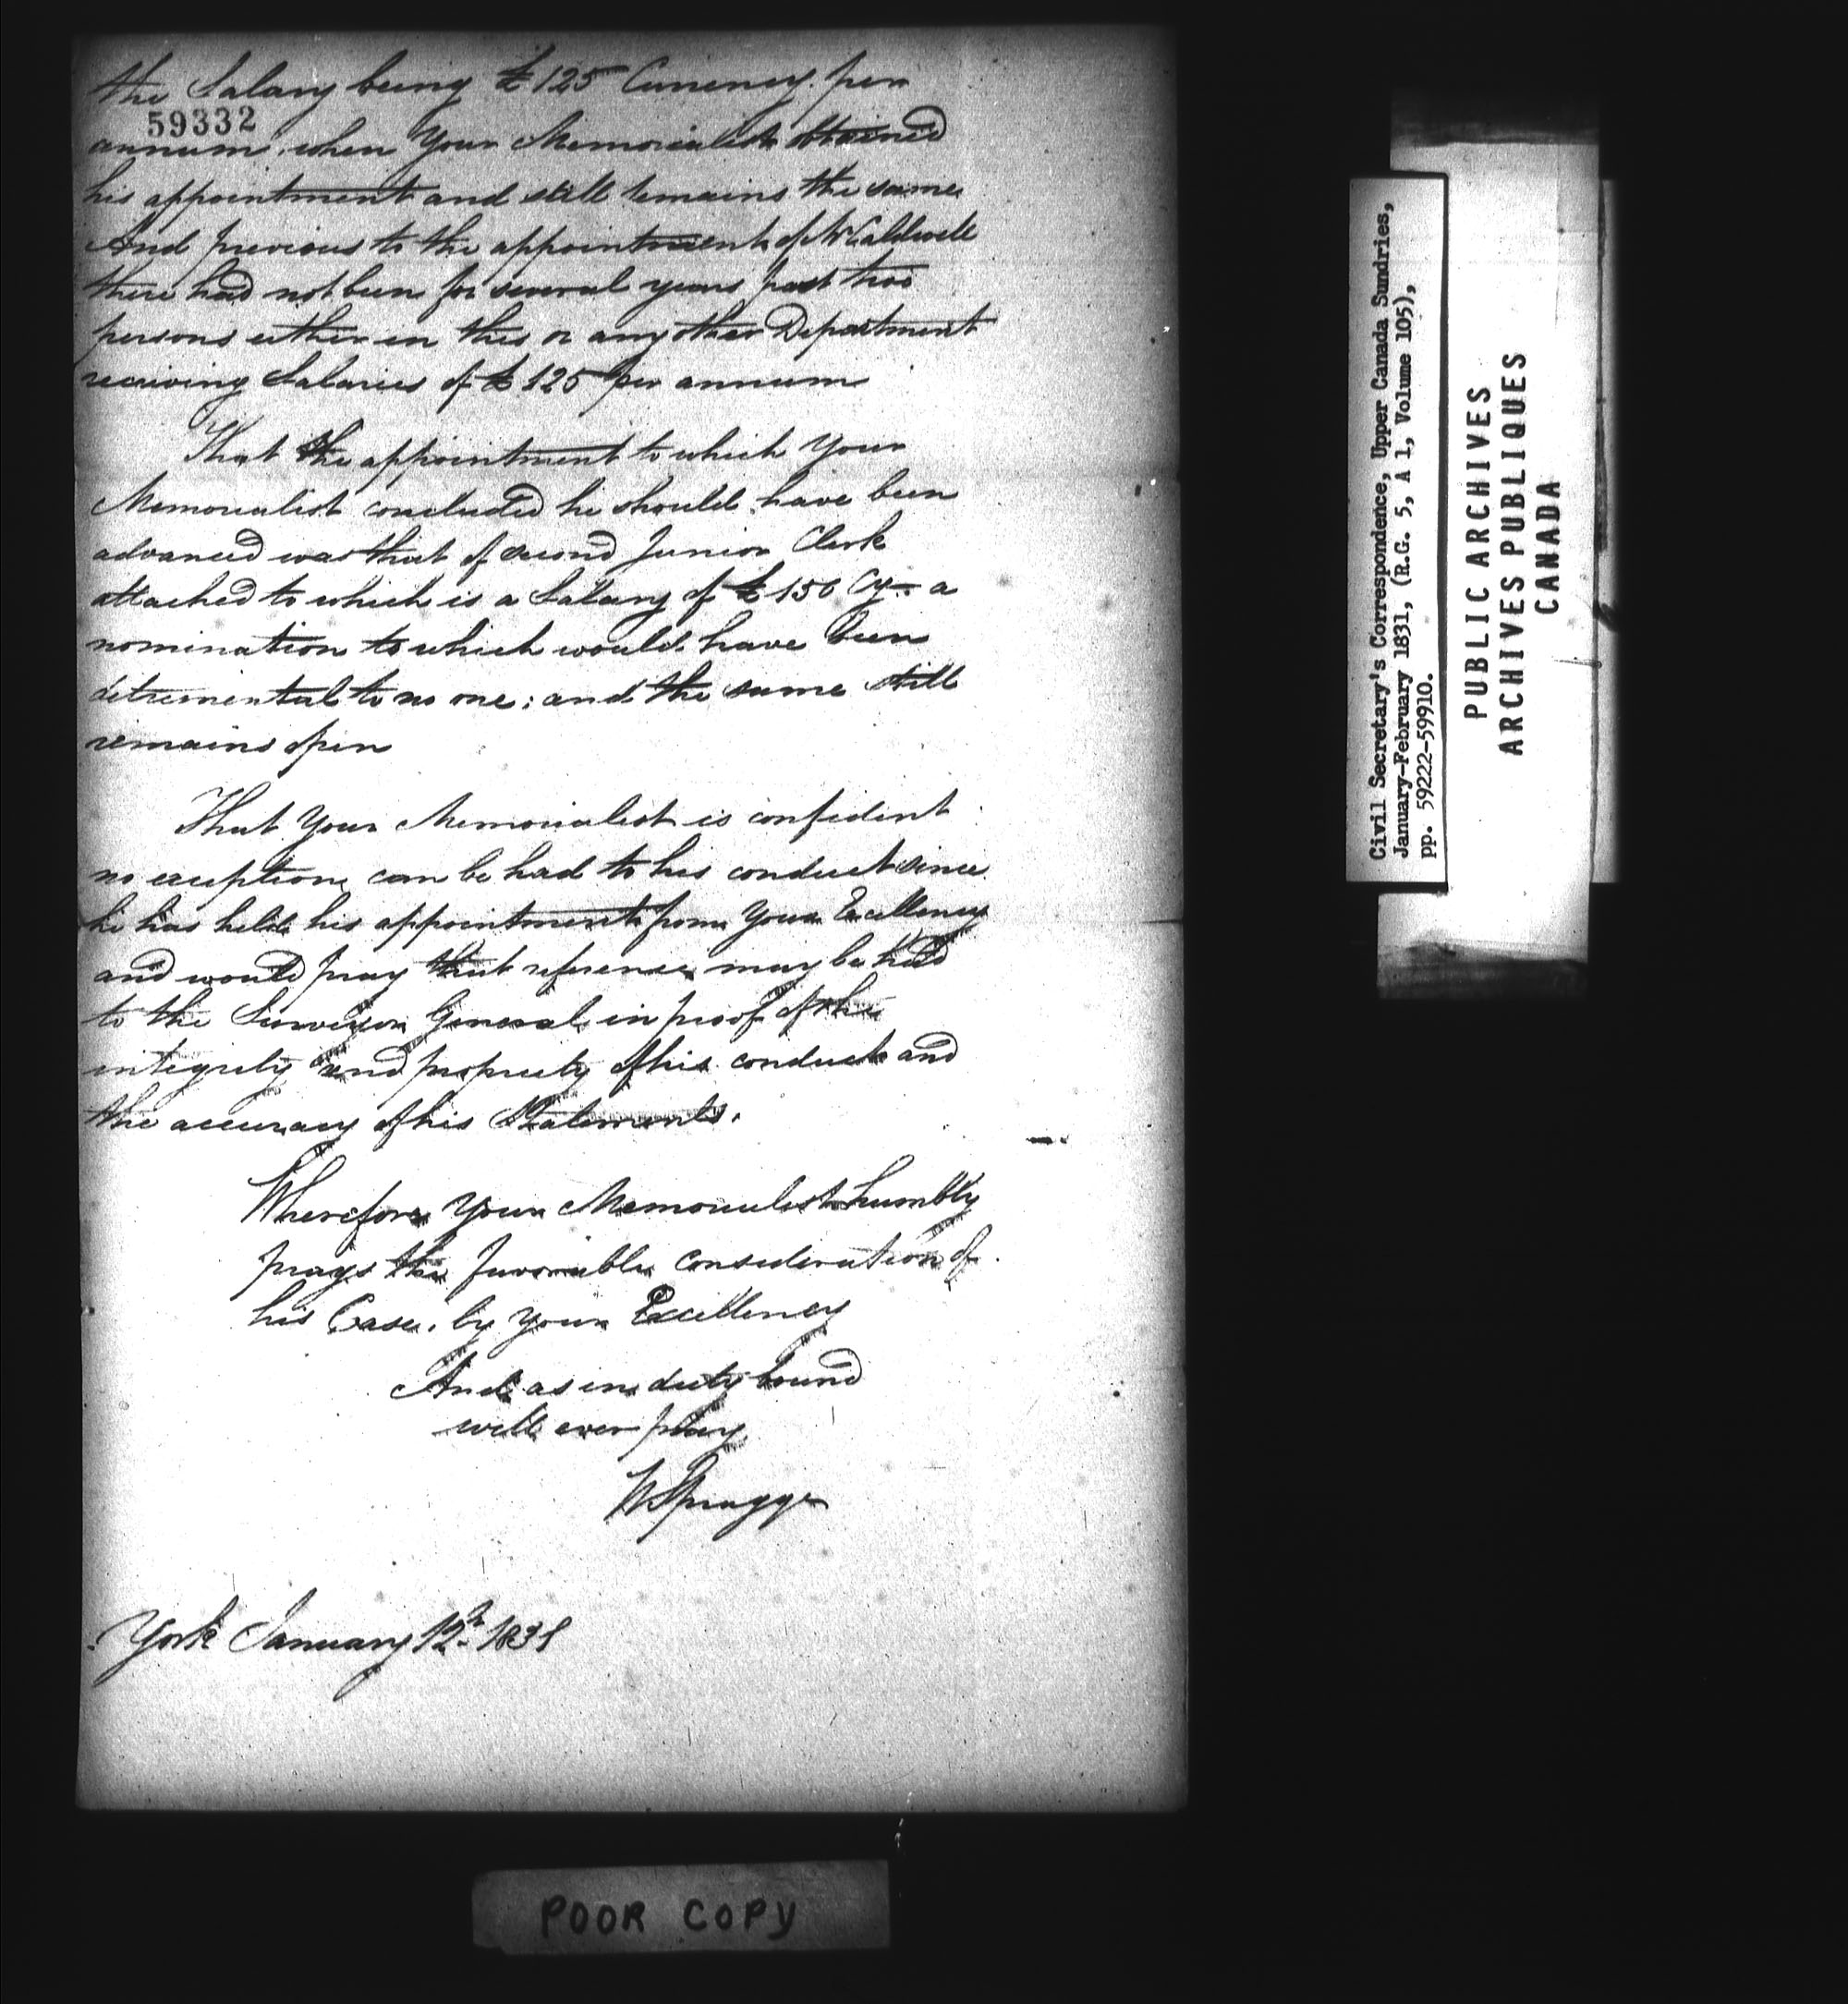 the Salary being £125 Currency per
59332
annum, when Your Memorialist obtained
his appointment and still remains the same
And previous to the appointment of Mr Caldwell
there had not been for several years past two
persons either in this or any other Department
receiving Salaries of £125 per annum
That the appointment to which Your
Memorialist concluded he should have been
advanced was that of second Junior Clerk
attached to which is a Salary of £150 Cy. a
nomination to which would have been
detremental to no one; and the same still
remains open
That Your Memorialist is confident
no exception can be had to his conduct since
he has held his appointment from Your Excellency
and would pray that reference may be had
to the Surveyor General in proof of the
integrity and propriety of his conduct and
the accuracy of his Statements.
Wherefore Your Memorialist humbly
prays the favorable consideration of
his Case, by Your Excellency
And as in duty bound
will ever pray
W Spragge
York January 12th 1831
Civil Secretary's Correspondence, Upper Canada Sundries,
January-February 1831, (R.G. 5, A 1, Volume 105),
pp. 59222-59910.
PUBLIC ARCHIVES
ARCHIVES PUBLIQUES
CANADA
POOR COPY